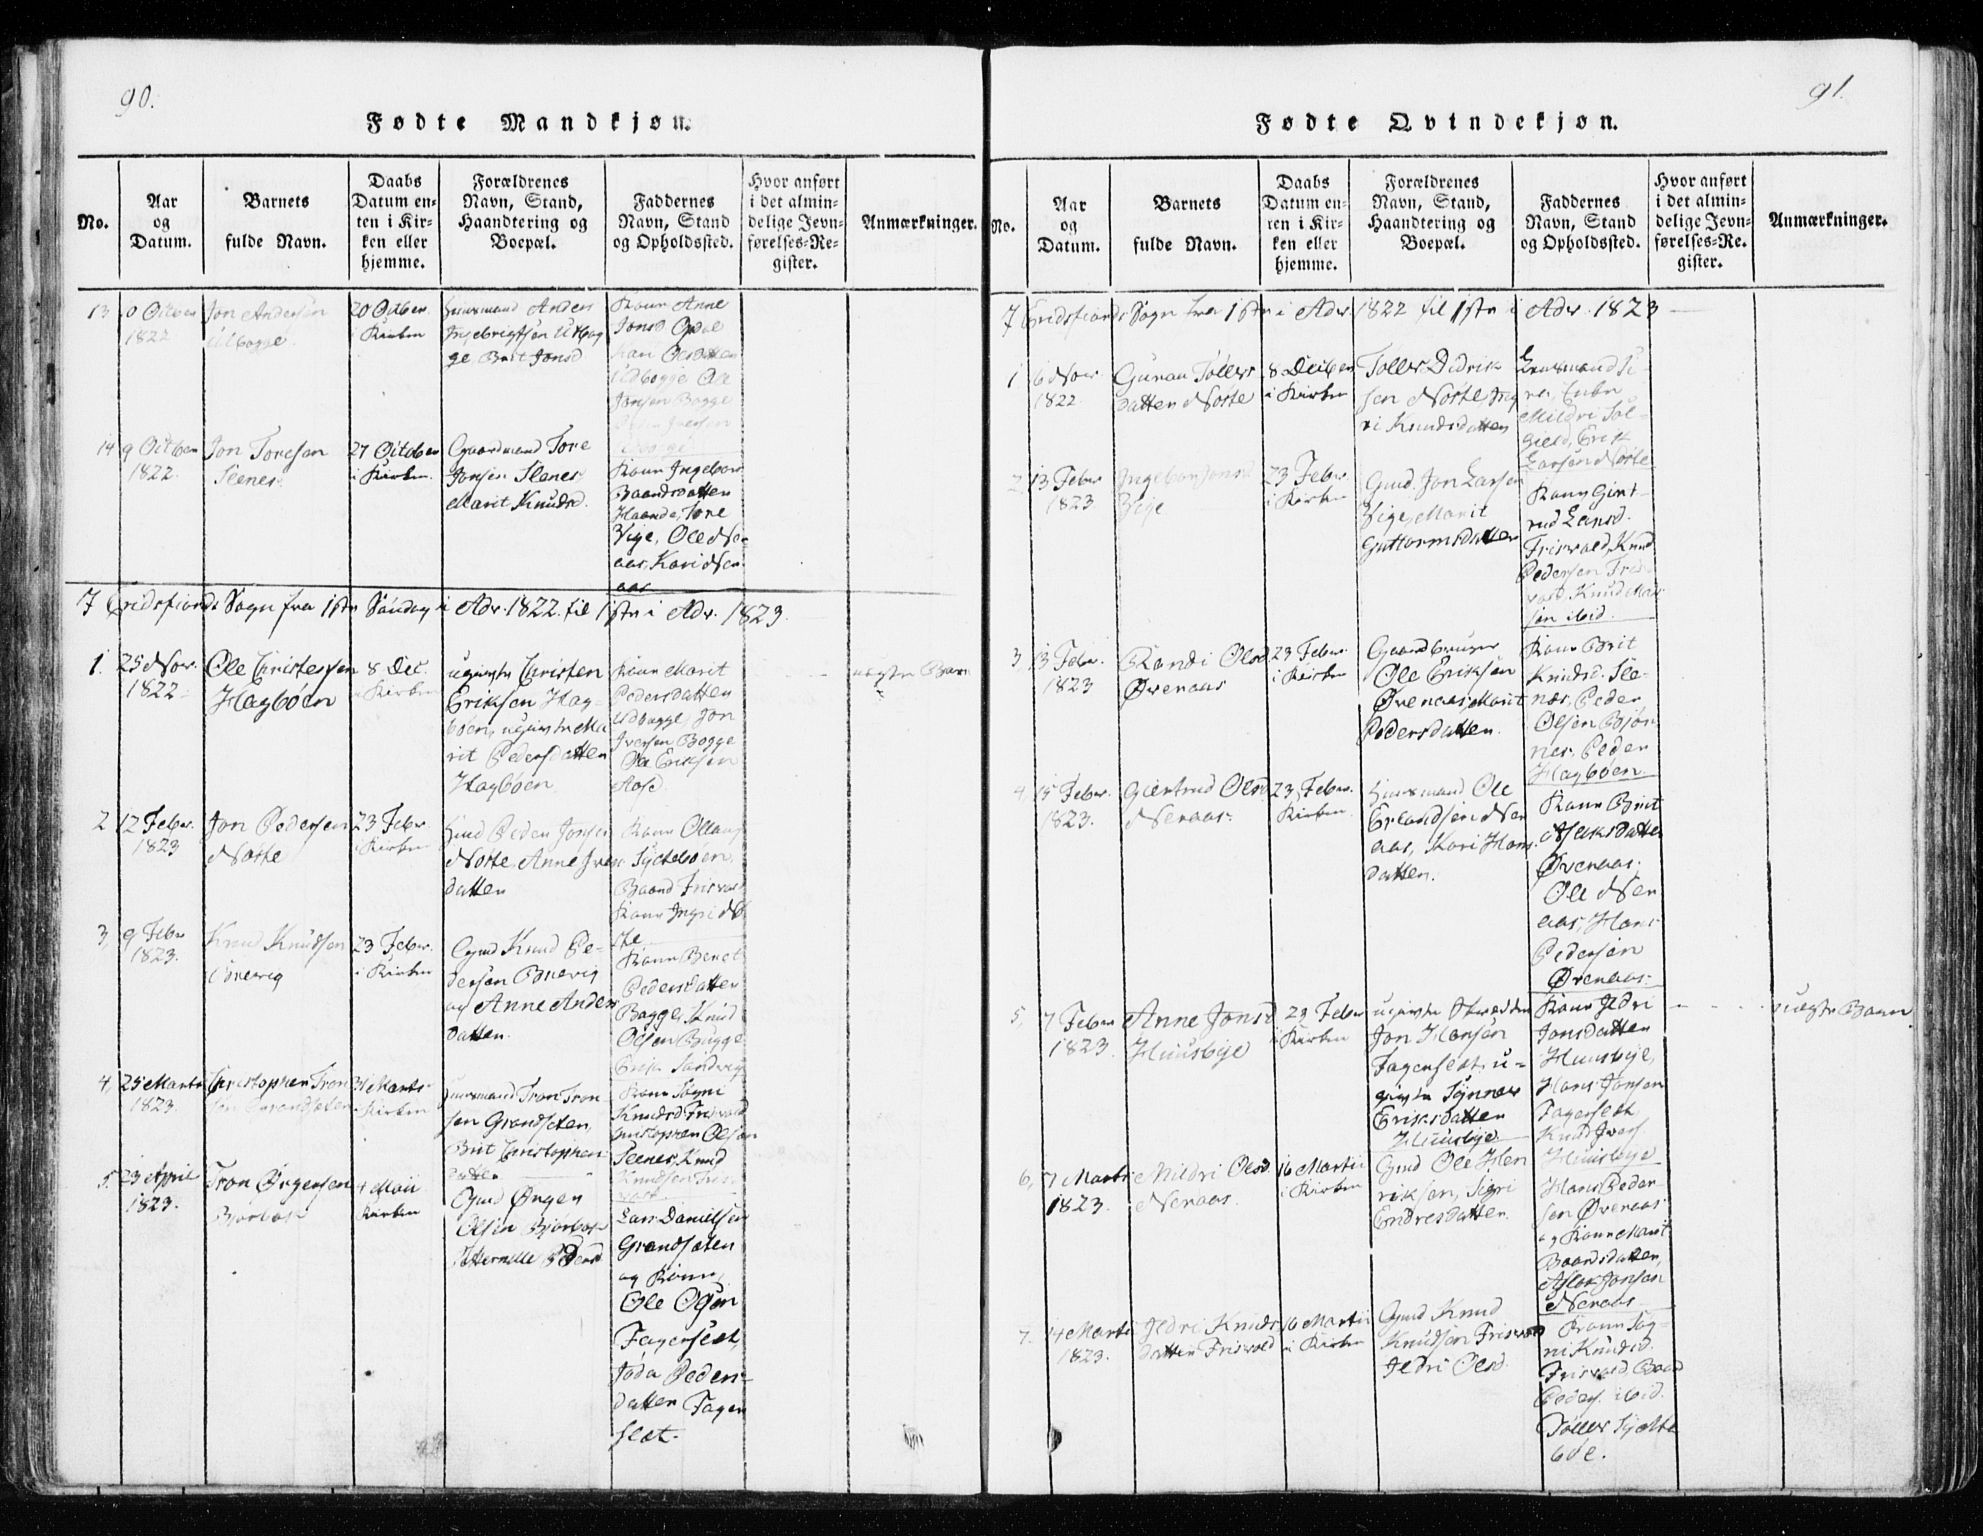 90.
Fødte Mandkjøn.
No.
Aar
og
Datum.
Barnets
fulde Navn.
Daabs
Datum en-
ten i Kir-
ken eller
hjemme.
Forældrenes
Navn, Stand,
Haandtering og
Boepæl.
Faddernes
Navn, Stand
og Opholdssted.
Hvor anført
i det almin-
delige Jevn-
førelses-Re-
gister.
Anmærkninger.
13
Octber
1822
Jon Andersen
Utbogge
20 Octber
i Kirken
Huusmand Anders
Ingebrigtsen Utbog
ge Brit Jonsd
Kone Anne
Jonsd
Kari Olsdatter
Utbogge Ole
Jonsen Bogge
14
9 Octber
1822.
Jon Toresen
Slenes.
27 October
i Kirken.
Gaardmand Tore
Jonsen Slenes
Marit Knudsd.
Kone Ingebor
Baardsdatter
Tore
Vige, Ole Ne-
aas, Kari Ner
aas
7 Eridsfiords Sogn fra 1ste Søndag i Adv. 1822 til 1ste i Adv. 1823.
1.
25 Nov.
1822
Ole Christensen
Hagbøen
8 Dec.
i Kirken
ugivte Christen
Eriksen Hag-
bøen, ugivte Ma
rit Pedersdatter
Hagbøen
Kone Marit
Pedersdatter
Utbogge, Jon
Iversen Bogge
Ole Eriksen
uægte Barn
2
12 Febr.
1823
Jon Pedersen
Nøste
23 Febr.
i Kirken
Gmd Peder Jonsen
Nøste, Anne Ivers
datter
Kone
Baard Frisvold
Kone Ingri Nø
ste
3,
9 Febr
1823.
Knud Knudsen
23 Febr.
i Kirken
Gmd Knud Pe-
dersen
og Anne Anders
datter.
Kone Beret
Pedersdatter
Bogge, Knud
Olsen Bugge
Erik Sandvig
4,
25 Marts
1823.
Christopher Tron
sen Grandsæten
31 Marts
i Kirken
Huusmand Tron Tron
sen Grandseten,
Brit Christopher
datter
Kone Signi
Knudsd Frisvold
Christopher Olsen
Slenes, Knud
Knudsen Fris
vold
5.
23 April
1823.
Tron Ørgensen
Bjørbak
4 Maii
Kirken
Gmd Ørgen
Olsen Bjørbak
Lars Danielsen
Grandsæten
og Kone,
Ole Olsen
Fagerslet,
Peders-
datter Fager
slet.
91.
Fødte Qvindekjøn.
No.
Aar
og
Datum.
Barnets
fulde Navn.
Daabs
Datum en-
ten i Kir-
ken eller
hjemme.
Forældrenes
Navn, Stand,
Haandtering og
Boepæl.
Faddernes
Navn, Stand
og Opholdssted.
Hvor anført
i det almin-
delige Jevn-
førelses-Re-
gister.
Anmærkninger.
7 Eridsfiords Sogn fra 1ste i Adv. 1822 til 1ste i Adv. 1823
1
6 Nov.
1822
Guran Tøllevs
datter Nøste
8 Decber
i Kirken
Tøllev Didrik
sen Nøste, Ing
ri Knudsdatter
Mildri Sol-
gield, Erik
Larsen Nøste
2,
13 Febr
1823
Ingebor Jonsd
Vije
23 Febr.
i Kirken
Gmd. Jon Larsen
Vige, Marit
Guttormsdatter
Kone Giert-
rud Larsd.
Frisvold, Knud
Pedersen Fris
vold, Knud
sen ibid.
3,
13 Febr.
1823
Randi Olsd
Øveraas
23 Febr.
i Kirken
Gaardbruger
Ole Eriksen
Øveraas, Marit
Pedersdatter.
Kone Brit
Knudsd. Sle-
nes, Peder
Olsen Bjør
nes, Peder
Hagbøen.
4
15 Febr.
1823.
Giertrud Olsd
Neraas.
23 Febr.
Kirken.
Huusmand Ole
Erlandsen Ner
aas, Kari Hans
datter.
Kone Brit
Aslaksdatter
Øveraas.
Ole Ner
aas, Hans
Pedersen
Øveraas.
5,
7 Febr
1823.
Anne Jonsd
Huusbye
23 Febr
i Kirken
ugivte Skrædder
Jon Hansen
Fagerslet, u-
givte Synnev
Eriksdatter
Huusbye.
Kone Jldri
Jonsdatter
Huusbye,
Hans Jonsen
Fagerslet
Knud Ivers.
Huusbye
uægte Barn
6,
7 Marts
1823.
Mildri Olsd.
Neraas.
16 Martii
i Kirken
Gmd Ole Hen
riksen, Sigri
Endresdatter.
Hans Peder
sen Øveraas
og Kone Marit
Baardsdatter,
Aslak Jonsen
Neraas
7.
14 Marts
1823.
Jldri Knuds
datter Frisvold
16 Martii
i Kirken
Gmd Knud
Knudsen Frisvold
Jldri Olsd.
Kone Sig-
ni Knudsd.
Frisvold, Baard
Peders. ibid.
Tøllev Sjølte
bøe.